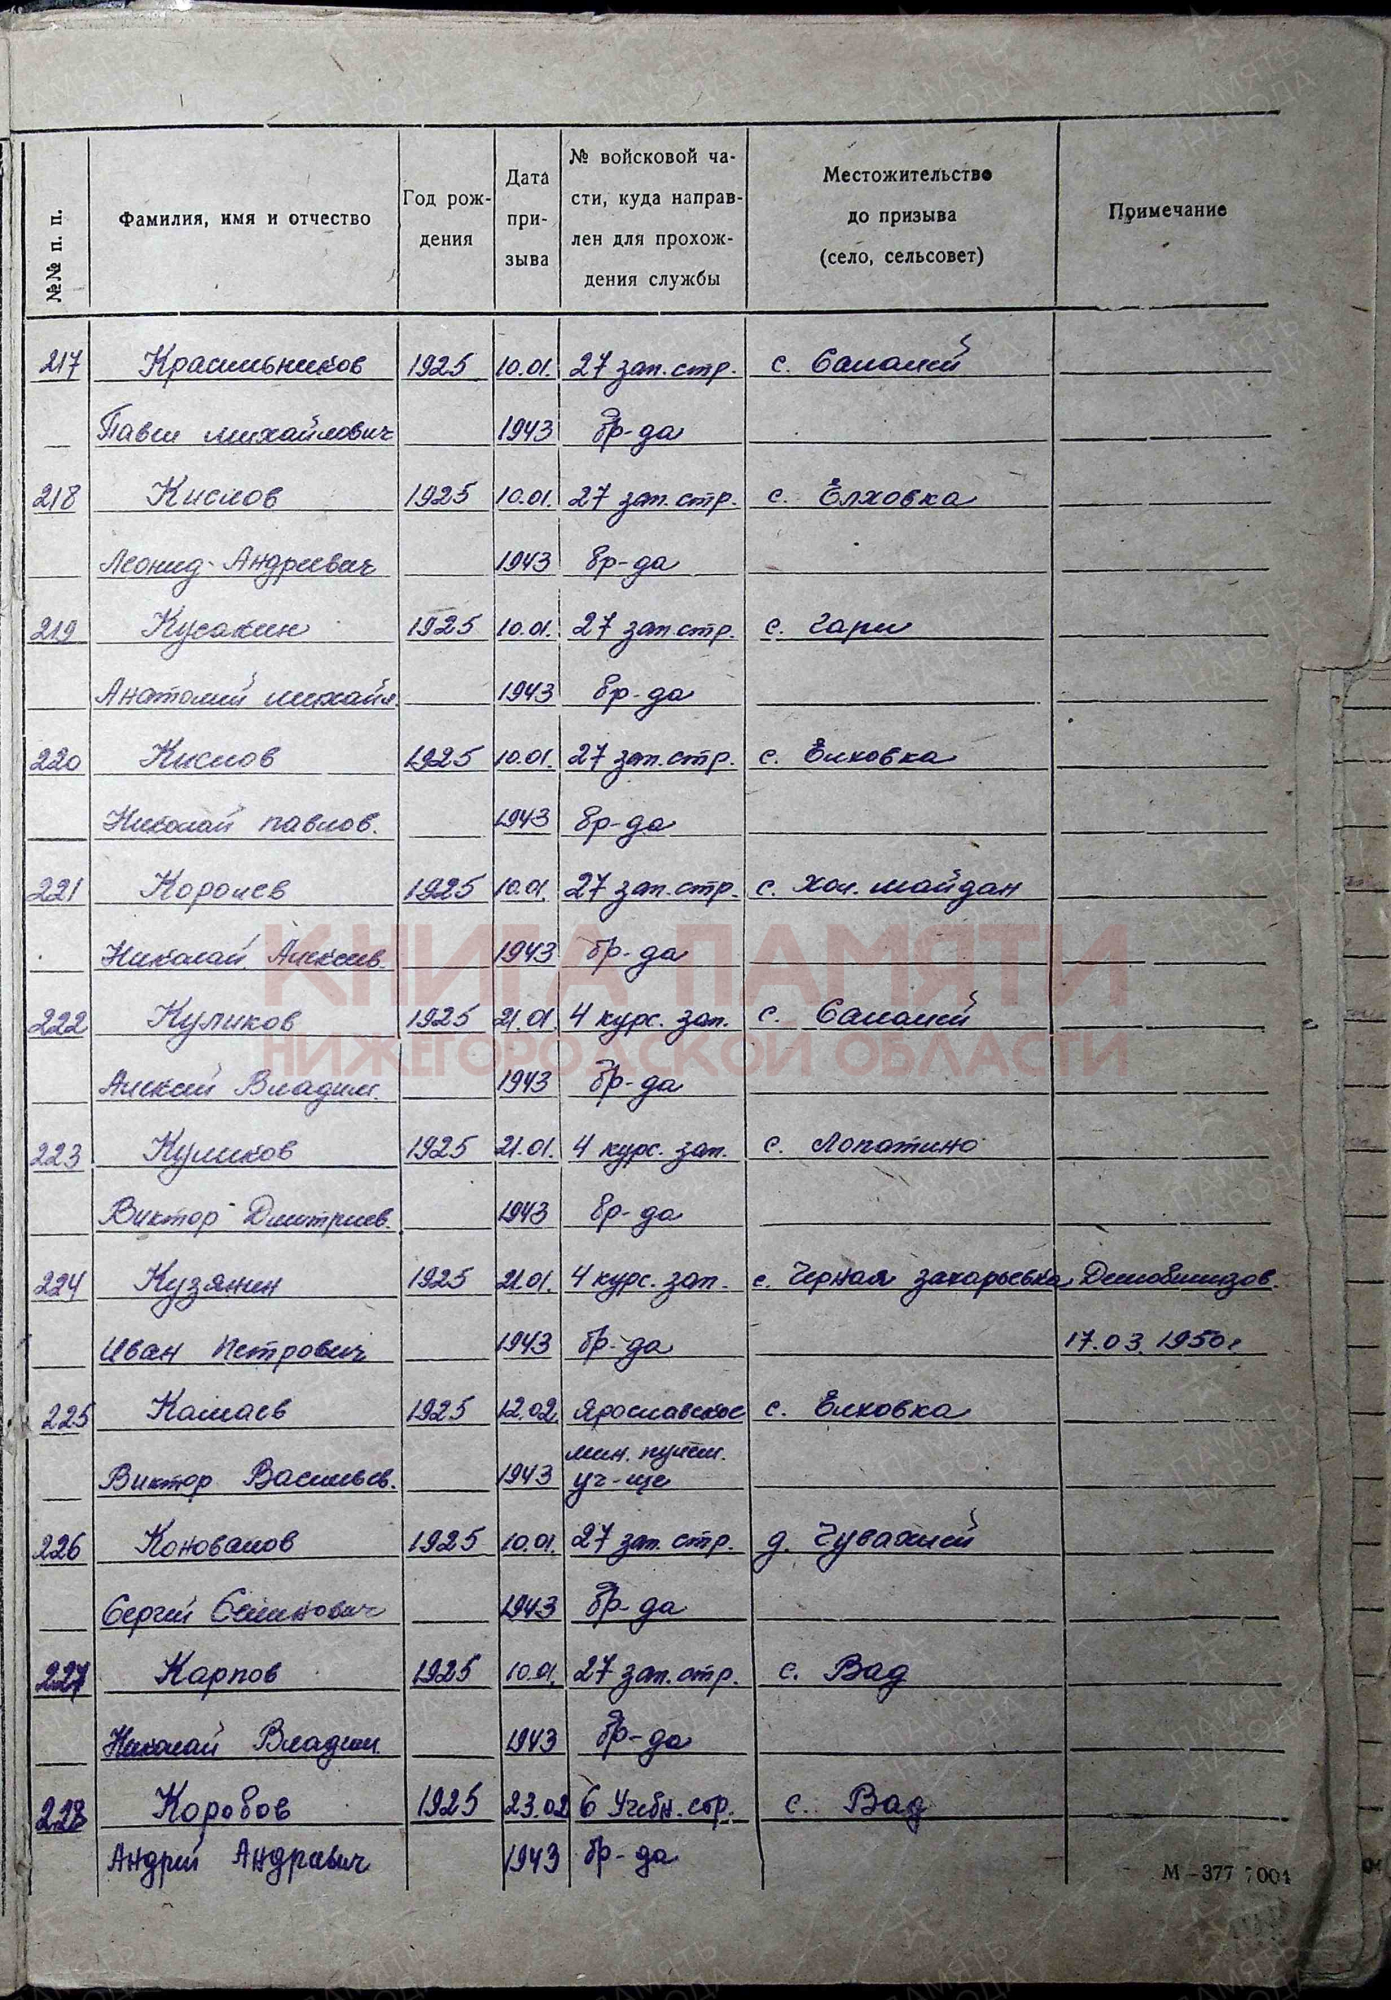 №№ п. п.
Фамилия, имя и отчество
Год рож-
дения
Дата
при-
зыва
№ войсковой ча-
сти, куда направ-
лен для прохож-
дения службы
Местожительство
до призыва
(село, сельсовет)
Примечание
217 Красильников 1925 10.01. 27 зап. стр. с. Салалей
Павел Михайлович 1943 бр-да
218 Кислов 1925 10.01. 27 зап. стр. с. Елховка
Леонид Андреевич 1943 бр-да
219 Кусакин 1925 10.01. 27 зап. стр. с. Гари
Анатолий Михайл. 1943 бр-да
220 Кислов 1925 10.01. 27 зап. стр. с. Елховка
Николай Павлов. 1943 бр-да
221 Королев 1925 10.01. 27 зап. стр. с. Хол. Майдан
Николай Алексеев. 1943 бр-да
КНИГА ПАМЯТИ
222 Куликов 1925 21.01. 4 курс. зап. с. Салалей
НИЖЕГОРОДСКОЙ ОБЛАСТИ
Алексей Владим. 1943 бр-да
223 Куликов 1925 21.01. 4 курс. зап. с. Лопатино
Виктор Дмитриев. 1943 бр-да
224 Кузянин 1925 21.01. 4 курс. зап. с. Черная Захарьевка Демобилизов.
Иван Петрович 1943 бр-да 17.03.1950г
225 Камаев 1925 12.02. Ярославское с. Елховка
Виктор Васильев. 1943 мин. пулем.
уч-ще
226 Коновалов 1925 10.01. 27 зап. стр. д. Чувахлей
Сергей Семенович 1943 бр-да
227 Карпов 1925 10.01. 27 зап. стр. с. Вад
Николай Владим. 1943 бр-да
228 Коробов 1925 23.02 6 Учебн. стр. с. Вад
Андрей Андреевич 1943 бр-да
М-377 7004